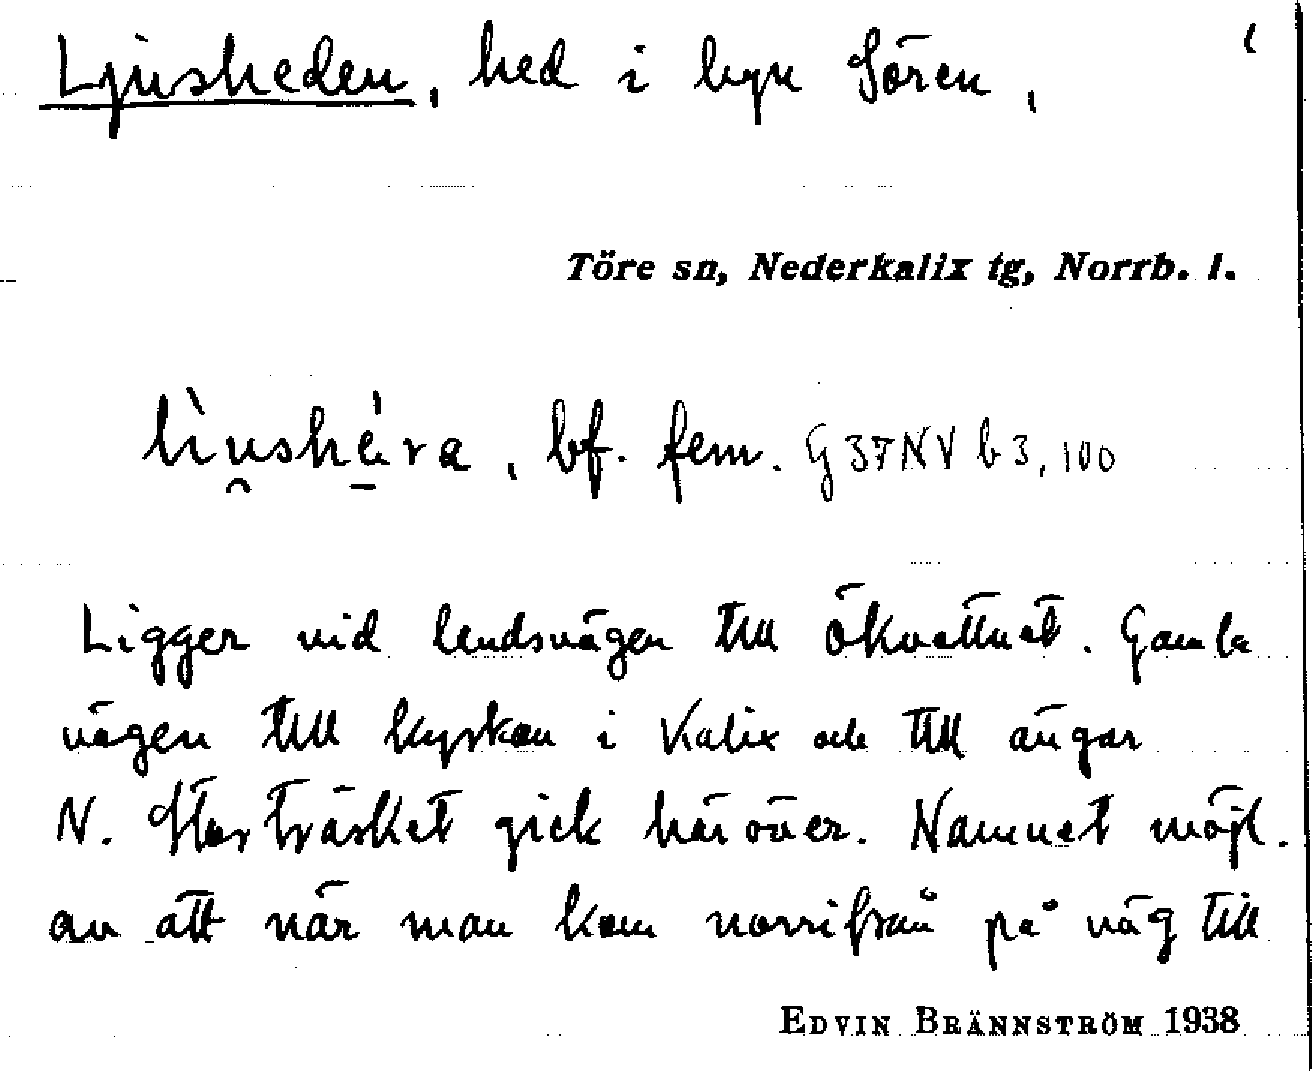 Ljusheden, hed i byn Sören,
Töre sn, Nederkalix tg, Norrb. l.
bf. fem. G 37 NV b 3, 100
Ligger vid landsvägen till Ökvattnet. Gamla
vägen till kyrkan i Kalix och till ängar
N. Storträsket gick häröver. Namnet möjl.
av att när man kom norrifrån på väg till
EDVIN BRÄNNSTRÖM 1938